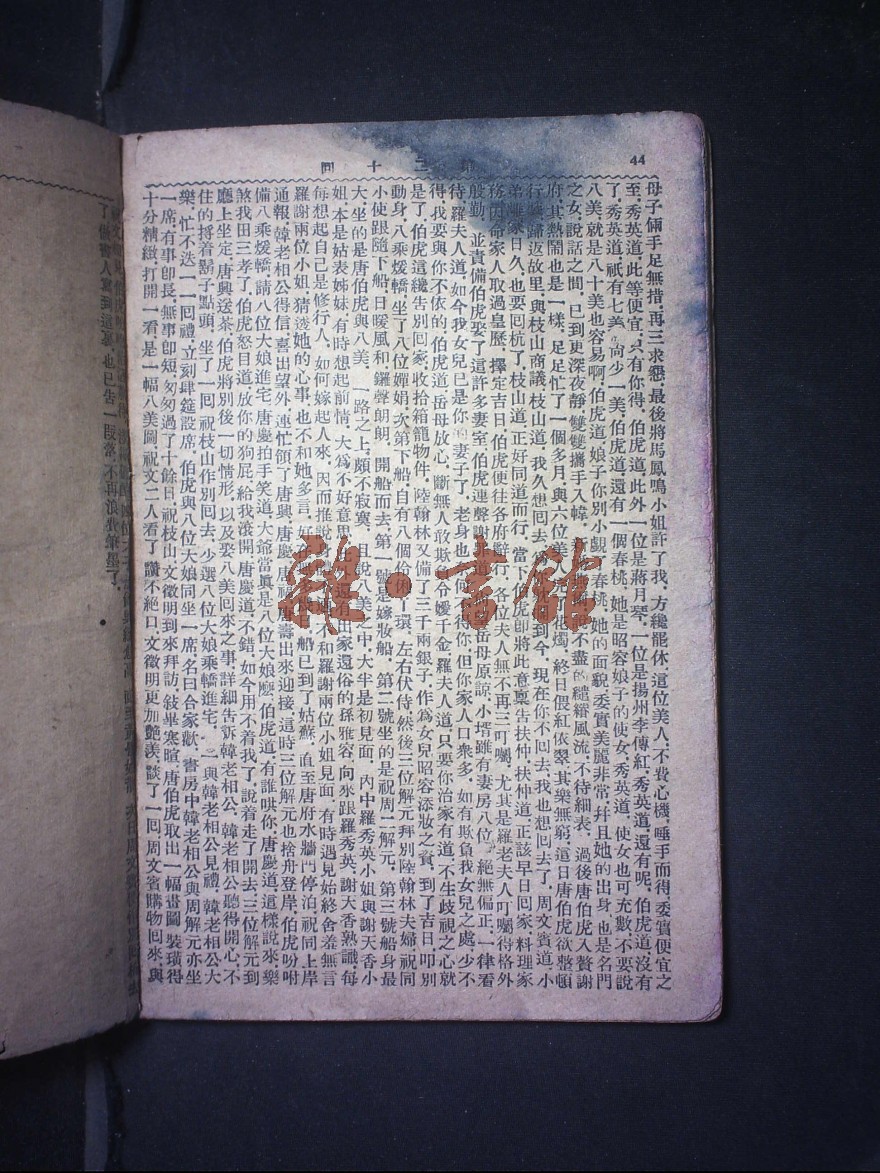 44
第三十回
母子倆手足無措．再三求懇．最後將馬鳳鳴小姐許了我．方纔罷休．這位美人．不費心機．唾手而得．委實便宜之
至．秀英道．此等便宜．只有你得．伯虎道．此外一位是蔣月琴．一位是揚州李傳紅．秀英道．還有呢．伯虎道．沒有
了．秀英道．祇有七美．尚少一美．伯虎道．還有一個春桃．她是昭容娘子的使女．秀英道．使女也可充數．不要說
八美．就是八十美也容易啊．伯虎道．娘子你別小覷了春桃．她的面貌委實美麗非常．幷且她的出身．也是名門
之女．說話之間．已到更深夜靜．雙雙攜手入幃．說不盡的繾綣風流．不待細表．過後唐伯虎入贅謝
府．其熱鬧也是一樣．足足忙了一個多月．與六位美人花燭．終日假紅依翠．其樂無窮．這日唐伯虎欲整頓
行裝．歸返故里．與枝山商議．枝山道．我久想回去．到今．現在你不回去．我也想回去了．周文賓道．小
弟離家日久．也要回杭了．枝山道．正好同道而行．當下伯虎即將此意稟告扶仲．扶仲道．正該早日回家．料理家
務．因命家人取過皇歷．擇定吉日．伯虎便往各府辭行．各位夫人無不再三叮囑．尤其是羅老夫人叮囑得格外
殷勤．並責備伯虎娶了這許多妻室．伯虎連聲道．岳母原諒．小壻雖有妻房八位．絕無偏正．一律看
待．羅夫人道．如今我女兒已是你的妻子了．老身也得．但你家人口衆多．如有欺負我女兒之處．少不
得．我要與你不依的．伯虎道．岳母放心．斷無人敢欺負令嬡千金．羅夫人道．只要你治家有道．不生歧視之心．就
是了．伯虎這纔告別回家．收拾箱籠物件．陸翰林又備了三千兩銀子．作爲女兒昭容添妝之資．到了吉日．叩別
動身．八乘煖轎．坐了八位嬋娟．次第下船．自有八個俏俐丫環．左右伏侍．然後三位解元拜別陸翰林夫婦．祝同
小使跟隨下船．日暖風和．鑼聲朗朗．開船而去．第一號是嫁妝船．第二號坐的是祝周二解元．第三號船身最
大．坐的是唐伯虎與八美．一路之上．頗不寂寞．且說八美之中．大半是初見面．內中羅秀英小姐與謝天香小
姐．本是姑表姊妹．有時想起前情．大爲不好意思．還有出家還俗的孫雅容．向來跟羅秀英．謝天香熟識．每
每想起自己是修行人．如何嫁起人來．因而推說不和羅謝兩位小姐見面．有時遇見．始終含羞無言．
羅謝兩位小姐．猜透她的心事．也不和她多言．船已到了姑蘇．直至唐府水牆門停泊．祝同上岸
通報．韓老相公得信．喜出望外．連忙領了唐興．唐慶．唐祿．唐壽出來迎接．這時三位解元也捨舟登岸．伯虎吩咐
備八乘煖轎．請八位大娘進宅．唐慶拍手笑道．大爺當眞是八位大娘麽．伯虎道．有誰哄你．唐慶道．這樣說來．樂
煞我田三孝了．伯虎怒目道．放你的狗屁．給我滾開．唐慶道．不錯．如今用不着我了．說着走了開去．三位解元到
廳上坐定．唐興送茶．伯虎將別後一切情形．以及娶八美回來之事．詳細告訴韓老相公．韓老相公聽得開心．不
住的捋着鬍子點頭．坐了一回．祝枝山作別回去．少選八位大娘乘轎進宅．一一與韓老相公見禮．韓老相公大
樂．忙不迭一一回禮．立刻肆筵設席．伯虎與八位大娘同坐一席．名曰合家歡．書房中韓老相公與周解元亦坐
一席．有事卽長．無事卽短．匆匆過了十餘日．祝枝山文徵明到來拜訪．敍畢寒暄．唐伯虎取出一幅畫圖．裝璜得
十分精緻．打開一看．是一幅八美圖．祝文二人看了．讚不絕口．文徵明更加艷羨．談了一回．周文賓購物回來．與
了．做書人寫到這裏．也已告一段落．不再浪費筆墨了．
雜·書館